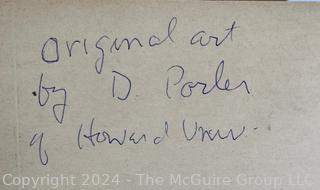 original art
by D. Porter
of Howard Unruh.
Copyright 2024 - The McGuire Group LLC